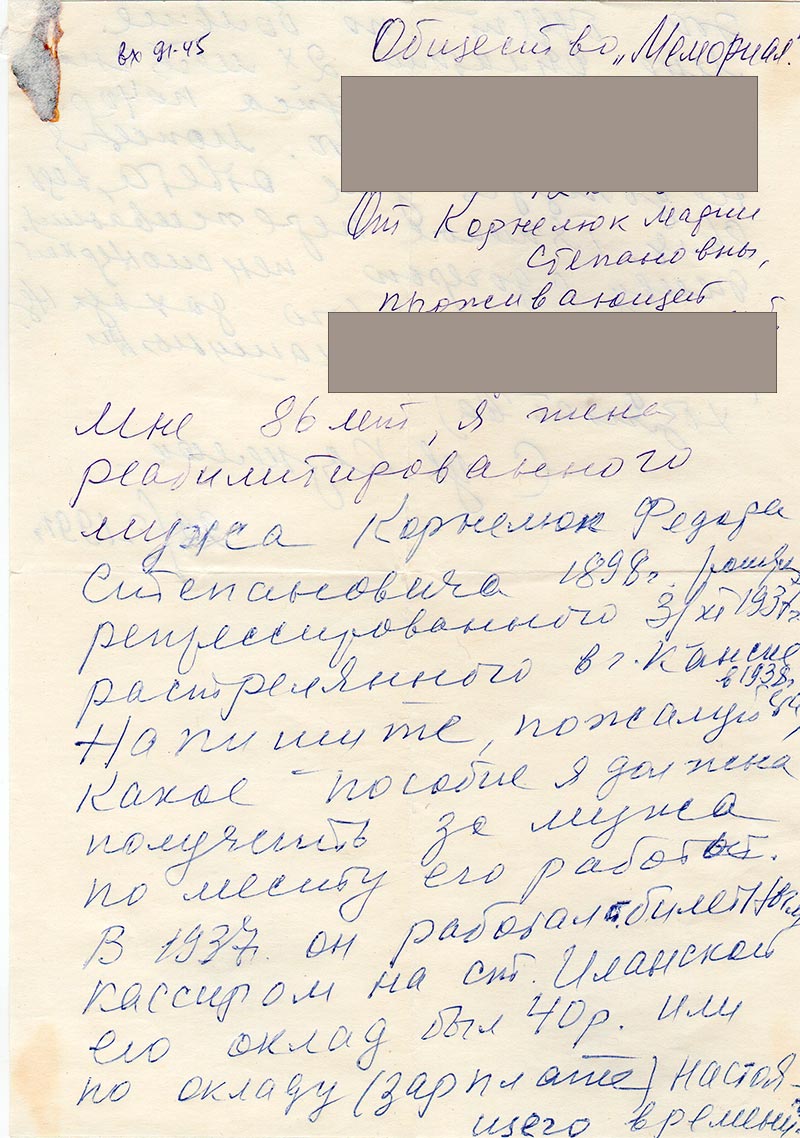 вх 91-45
Общество „Мемориал"
От Корнелюк Марии
Степановны,
проживающей
Мне 86 лет, я жена
реабилитированного
мужа Корнелюк Федора
Степановича 1898г.
репрессированного 3/XI 1937г
растрелянного в г. Канске
в 1938г.
Напишите, пожалуйста,
какое пособие я должна
получить за мужа
по месту его работы.
В 1937г. он работал билетным
кассиром на ст. Иланской
его оклад был 40р. или
по окладу (зарплате) настоя-
щего времени